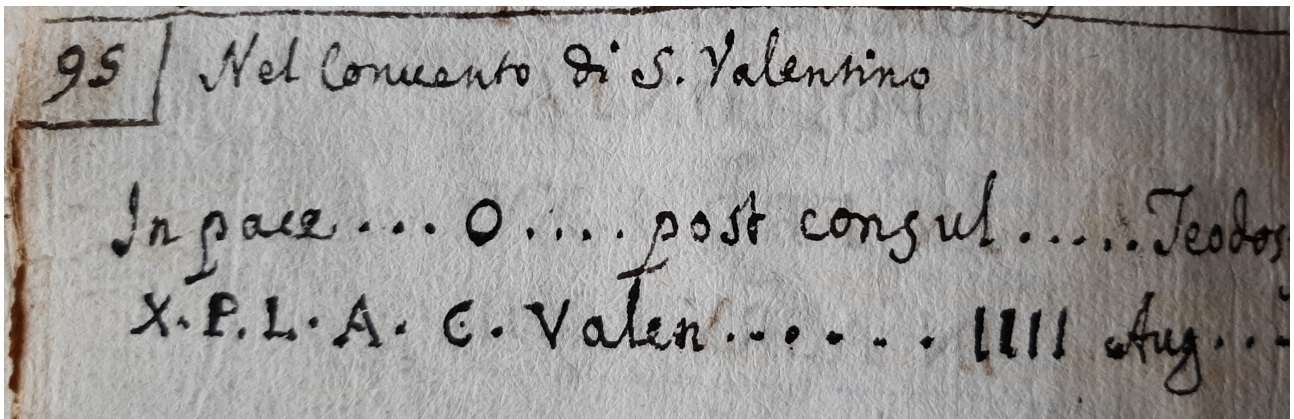 95 Nel Conuento di S. Valentino
In pace ... O .... post consul ..... Teodos
X. P. L. A. C. Valen ...... IIII Aug ...